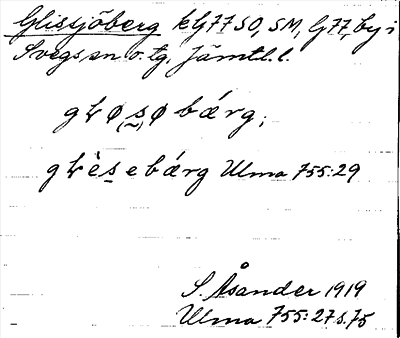 Glissjöberg kG77SO, SM, G77, by i
Svegs sn o. tg, Jämtl. l.
gⱡø(s)ø bǽrg;
gⱡèse bǽrg Ulma 755:29
S. Åsander 1919
Ulma 755:27 s.75